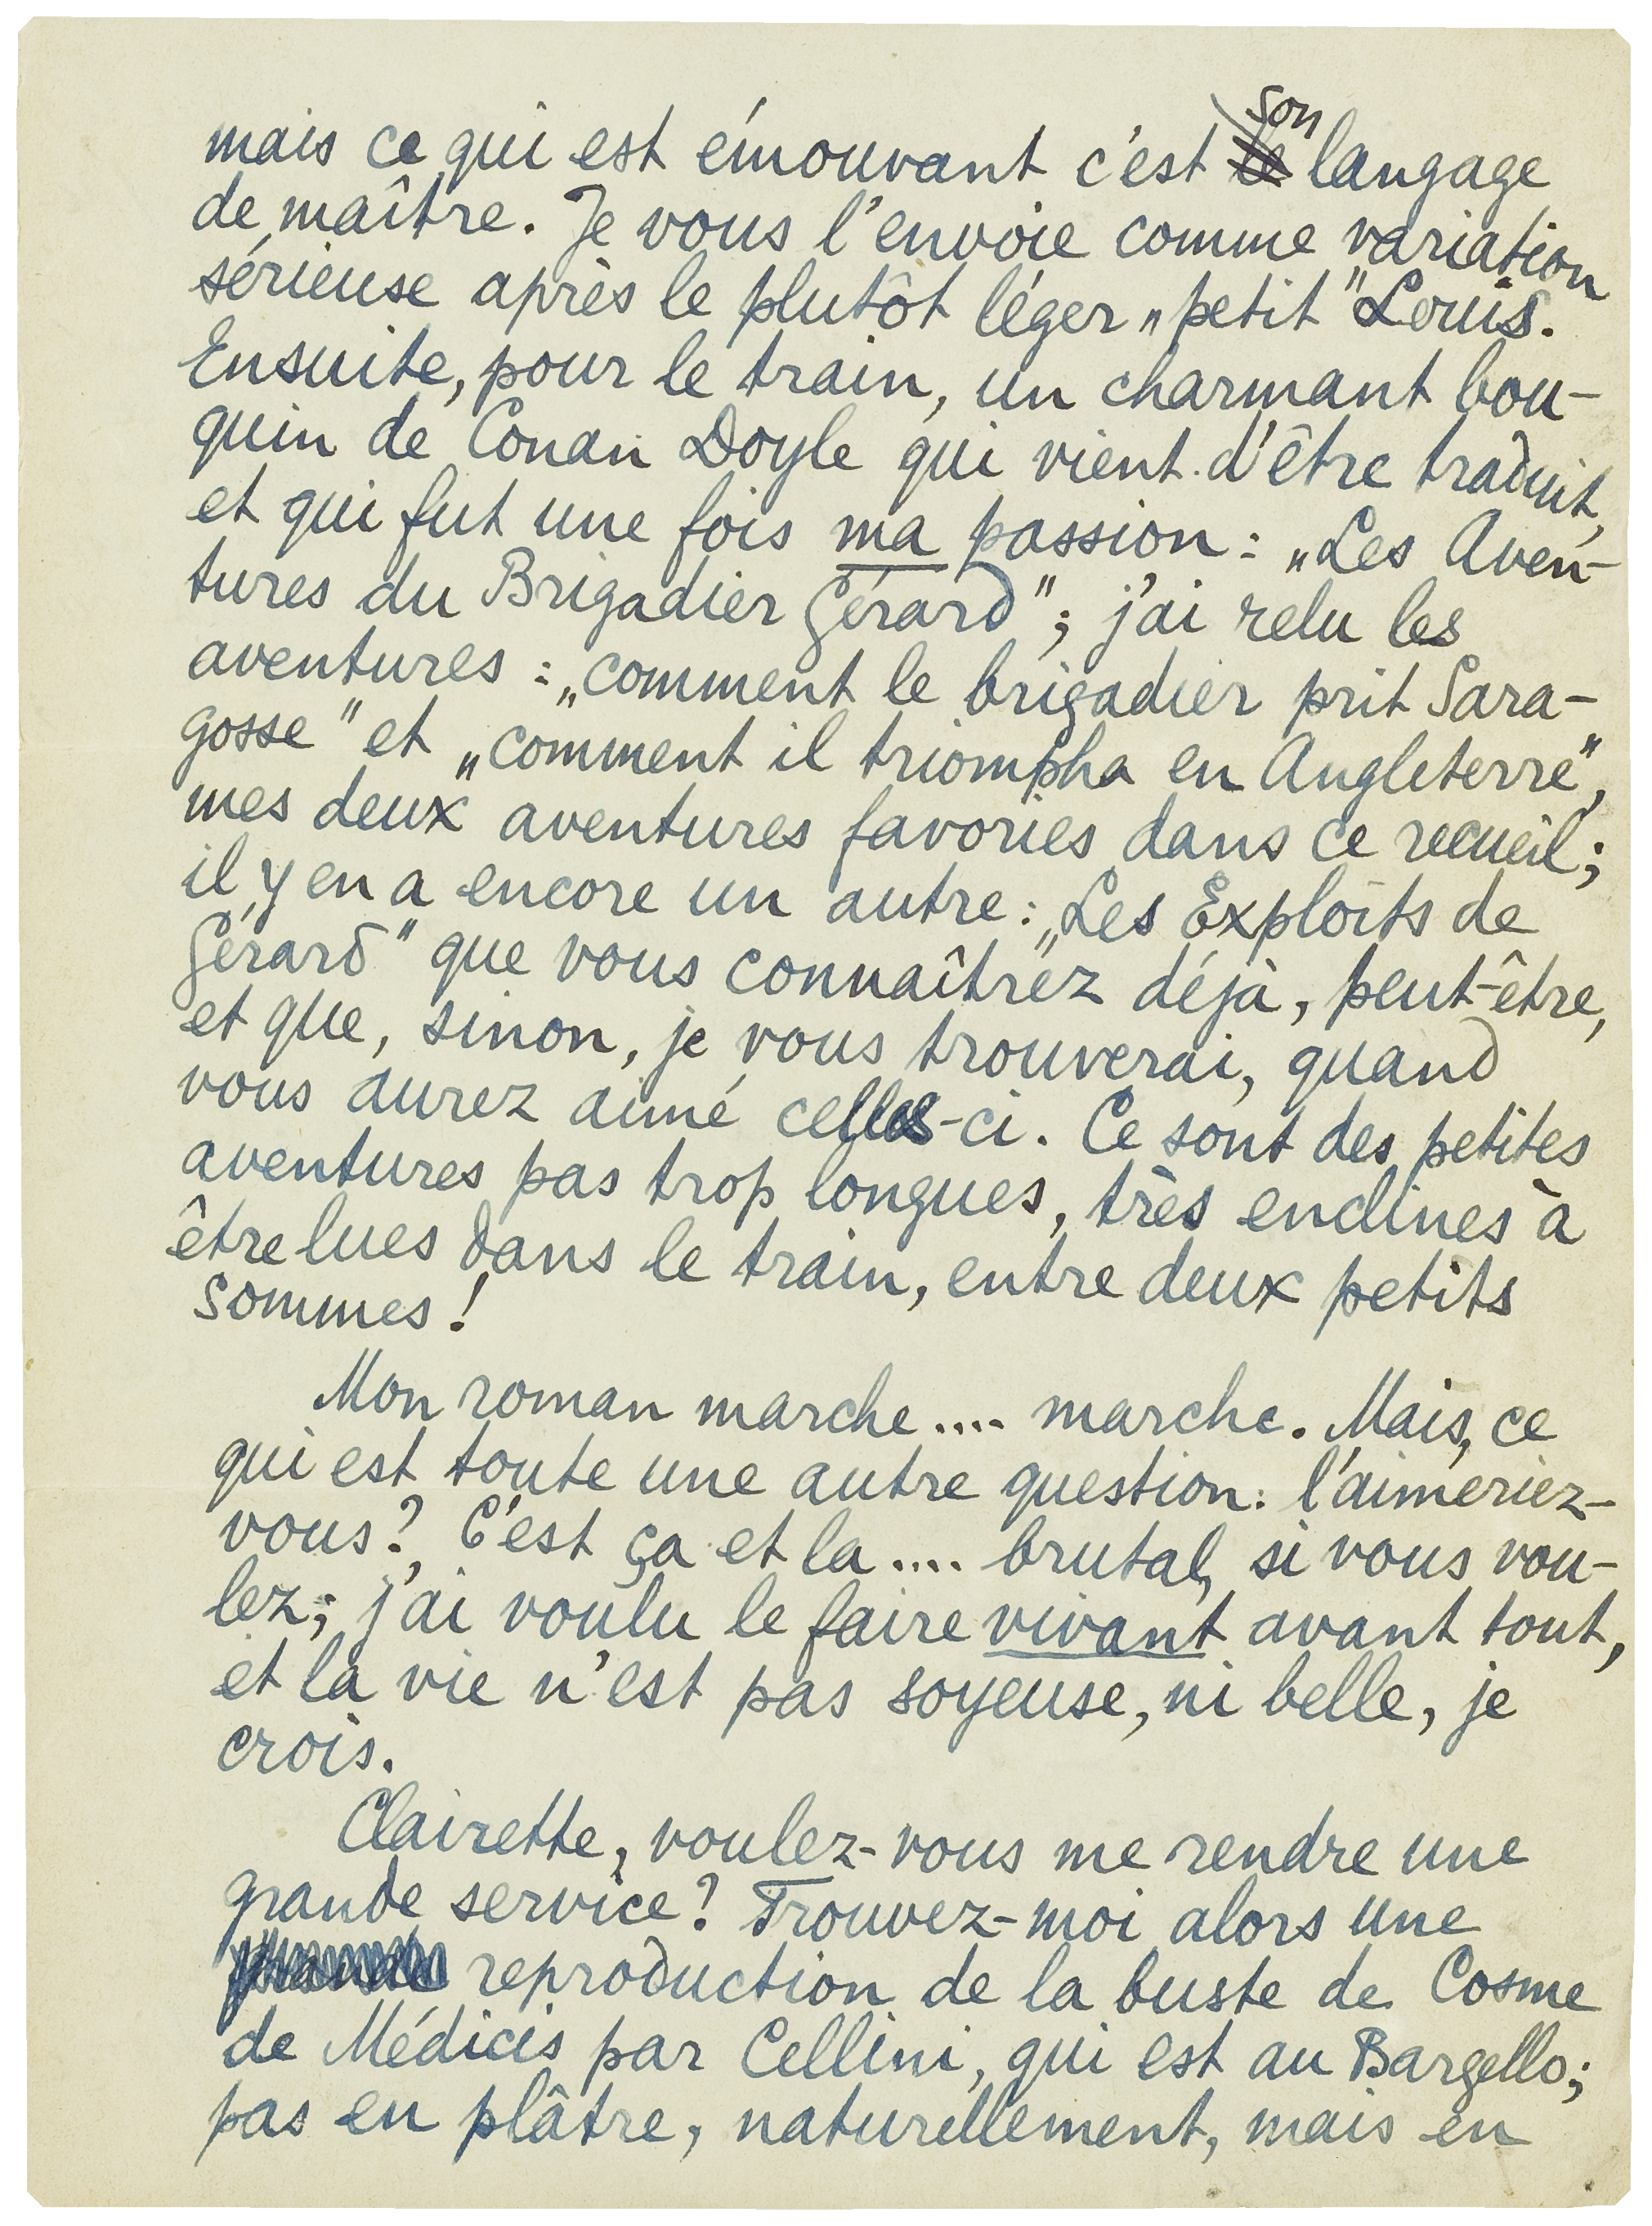 mais ce qui est émouvant c'est son langage
de maître. Je vous l'envoie comme variation
sérieuse après le plutôt léger „petit" Louis.
Ensuite, pour le train, un charmant bou-
quin de Conan Doyle qui vient d'être traduit,
et qui fut une fois ma passion: „Les Aven-
tures du Brigadier Gérard"; j'ai relu les
aventures: „comment le brigadier prit Sara-
gosse" et „comment il triompha en Angleterre",
mes deux aventures favories dans ce recueil;
il y en a encore un autre: „Les Exploits de
Gérard" que vous connaîtrez déjà, peut-être,
et que, sinon, je vous trouverai, quand
vous aurez aimé celles-ci. Ce sont des petites
aventures pas trop longues, très enclines à
être lues dans le train, entre deux petits
sommes!
Mon roman marche.... marche. Mais, ce
qui est toute une autre question: l'aimeriez-
vous? C'est ça et la.... brutal, si vous vou-
lez; j'ai voulu le faire vivant avant tout,
et la vie n'est pas soyeuse, ni belle, je
crois.
Clairette, voulez-vous me rendre une
grande service? Trouvez-moi alors une
reproduction de la buste de Cosme
de Médicis par Cellini, qui est au Bargello;
pas en plâtre, naturellement, mais en